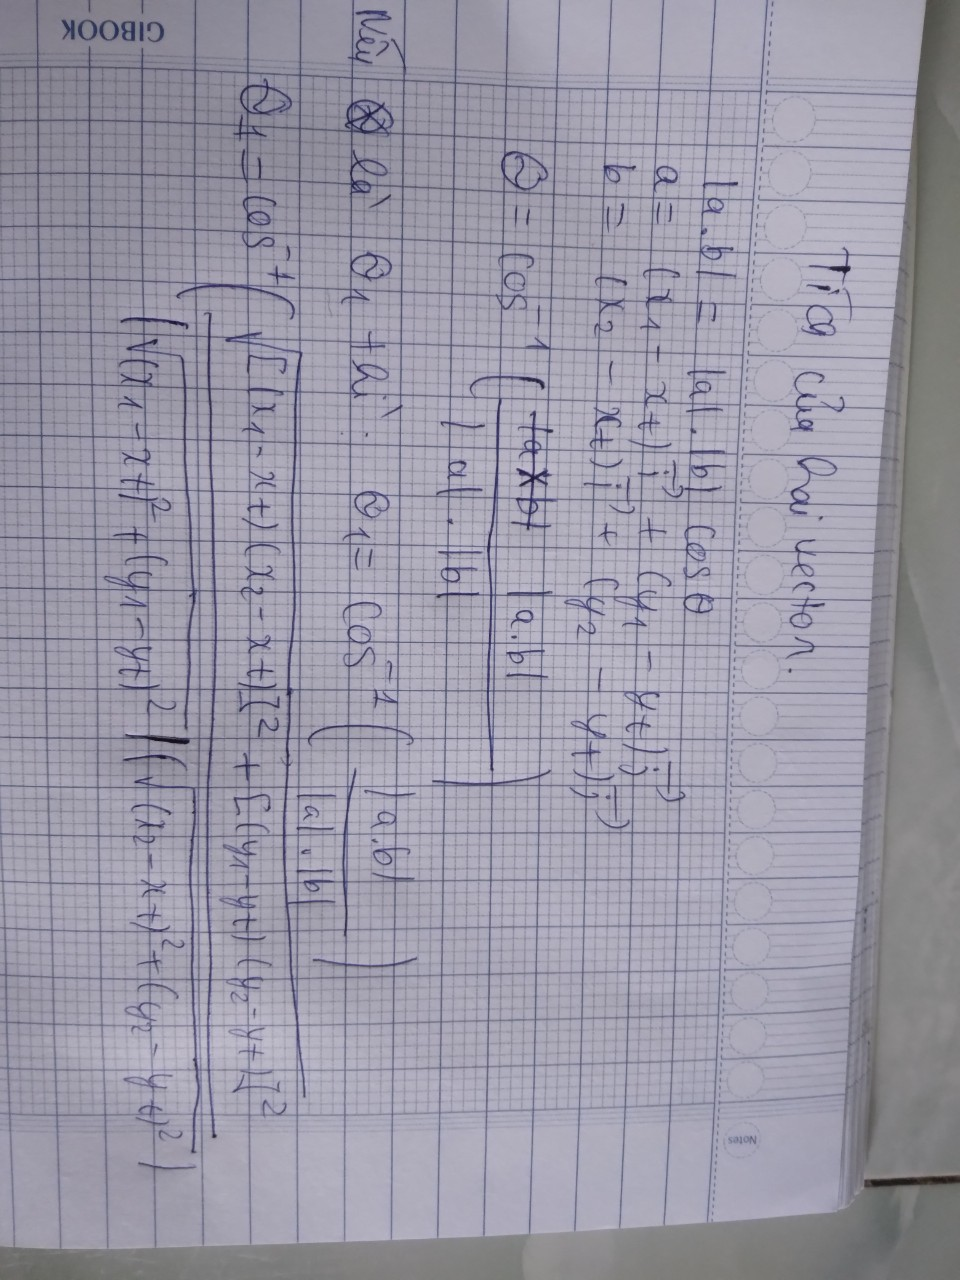 Tích của hai vector.
|a.b| = |a|.|b| cos θ
a = (x1 - xt) i→ + (y1 - yt) j→
b = (x2 - xt) i→ + (y2 - yt) j→
θ = cos⁻¹ ( |a.b| / |a|.|b| )
Nếu là θ1 thì: θ1 = cos⁻¹ ( |a.b| / |a|.|b| )
θ1 = cos⁻¹ ( √[(x1 - xt)(x2 - xt)]² + [(y1 - yt)(y2 - yt)]²
|√(x1 - xt)² + (y1 - yt)²| |√(x2 - xt)² + (y2 - yt)²|
Notes
GIBOOK